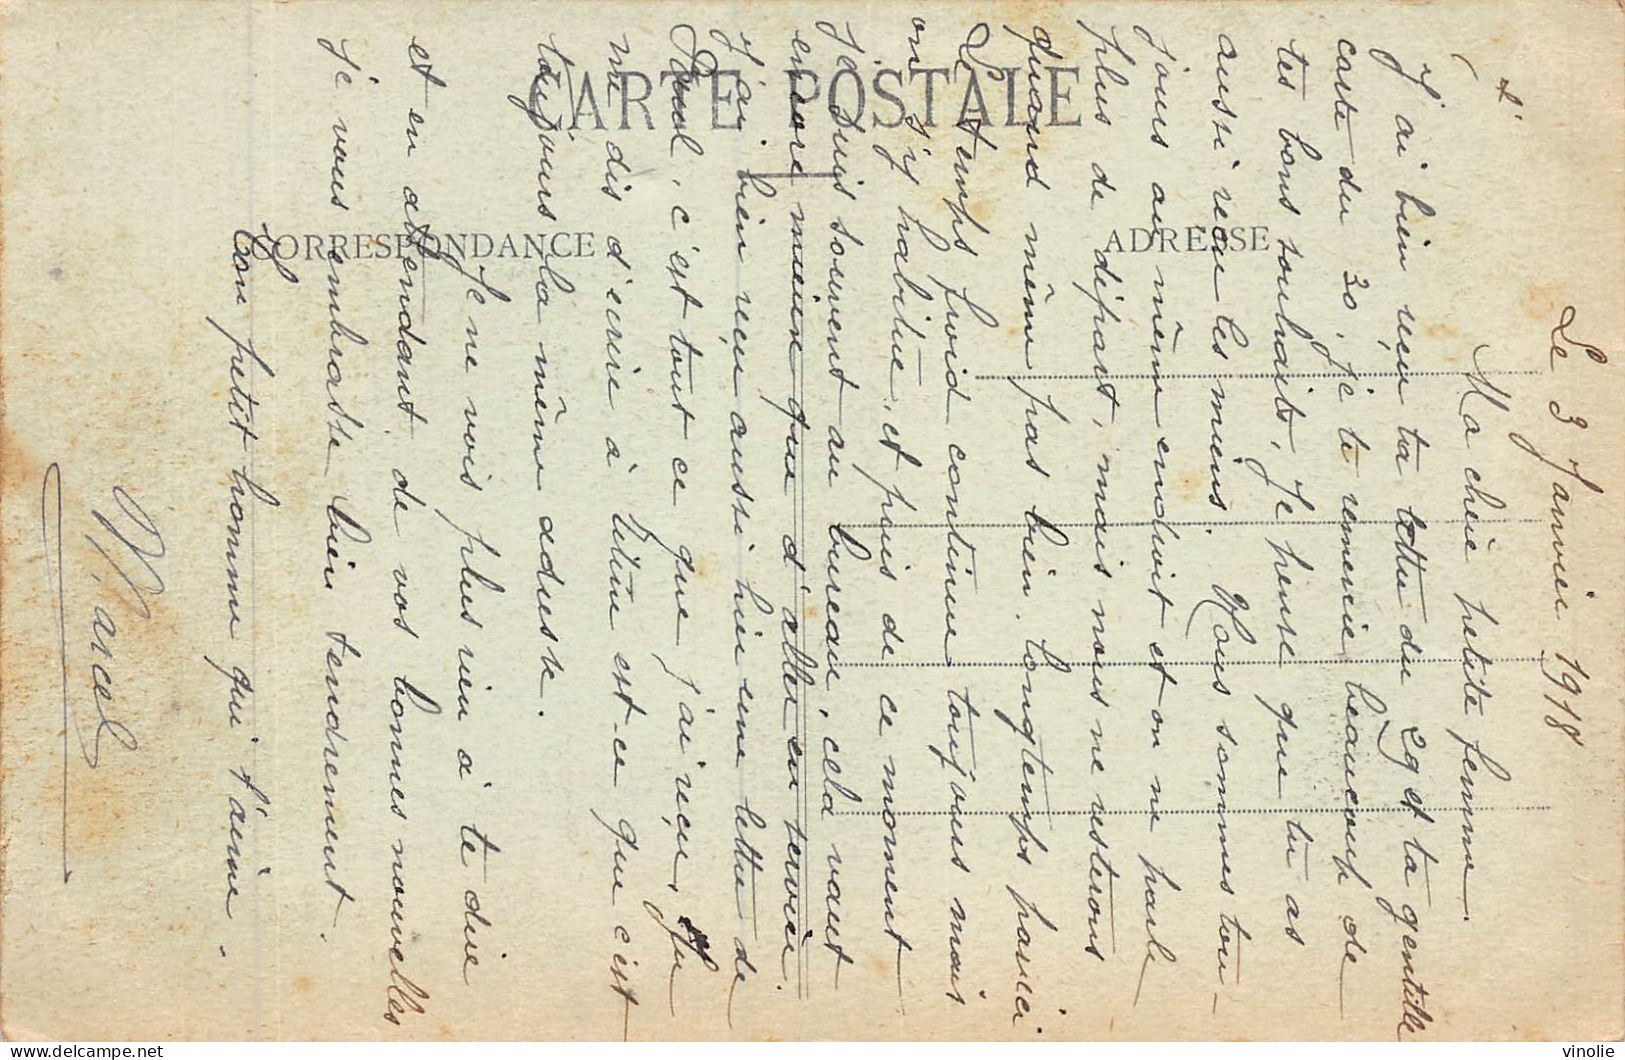 CARTE POSTALE
CORRESPONDANCE
ADRESSE
Le 3 Janvier 1918
Ma chère petite femme.
J'ai bien reçu ta lettre du 29 et ta gentille
carte du 30. Je te remercie beaucoup de
tes bons souhaits, Je pense que tu as
aussi reçu les miens. Nous sommes tou-
jours au même endroit et on ne parle
plus de départ, mais nous ne resterons
quand même pas bien longtemps par ici
Le temps froid continue toujours mais
on s'y habitue, et puis de ce moment
je suis souvent au bureau, cela vaut
encore mieux que d'aller en service.
J'ai bien reçu aussi hier une lettre de
Paul, c'est tout ce que j'ai reçu. Tu
me dis d'écrire à est-ce que c'est
toujours la même adresse.
Je ne vois plus rien à te dire
et en attendant de vos bonnes nouvelles
je vous embrasse bien tendrement.
Ton petit homme qui t'aime.
Marcel
vinolie